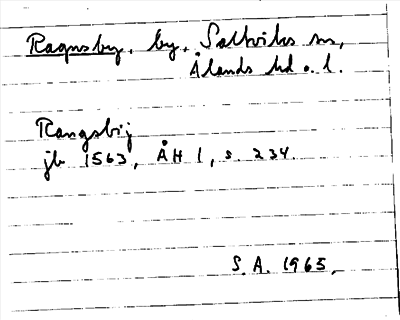 Ragnsby, by, Saltviks sn,
Ålands hd o. l.
Rangsbÿ
jb 1563, ÅH 1, s. 234.
S. A. 1965.